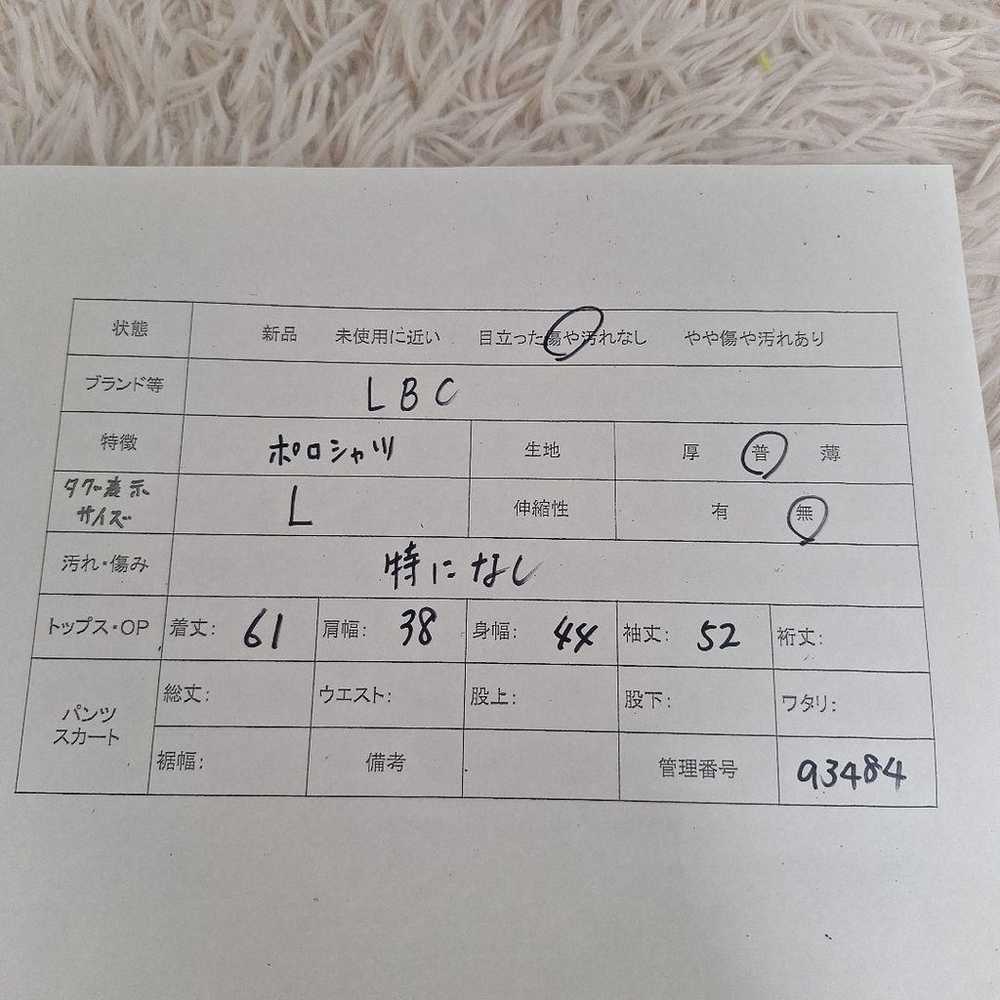 状態 新品 未使用に近い 目立った傷や汚れなし やや傷や汚れあり
ブランド等 LBC
特徴 ポロシャツ 生地 厚 普 薄
タグ表示
サイズ L 伸縮性 有 無
汚れ・傷み 特になし
トップス・OP 着丈: 61 肩幅: 38 身幅: 44 袖丈: 52 裄丈:
パンツ
スカート 総丈: ウエスト: 股上: 股下: ワタリ:
裾幅: 備考 管理番号 93484